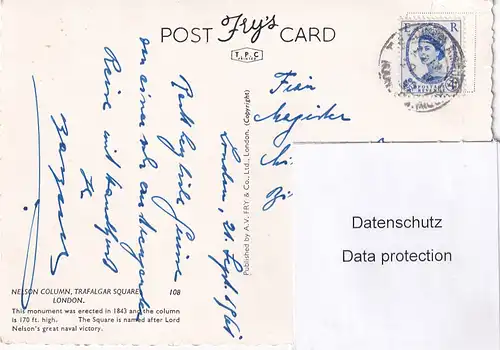 POST Fry's CARD
T.P.C
E R
POSTAGE
REVENUE
London, 21. Sept. 1961
Recht herzliche Grüsse
von einer sehr
Reise mit Handkuss
Ihr
Frau
Magister
Published by A.V. FRY & Co., Ltd., London. (Copyright)
Datenschutz
Data protection
NELSON COLUMN, TRAFALGAR SQUARE 108
LONDON.
This monument was erected in 1843 and the column
is 170 ft. high. The Square is named after Lord
Nelson's great naval victory.